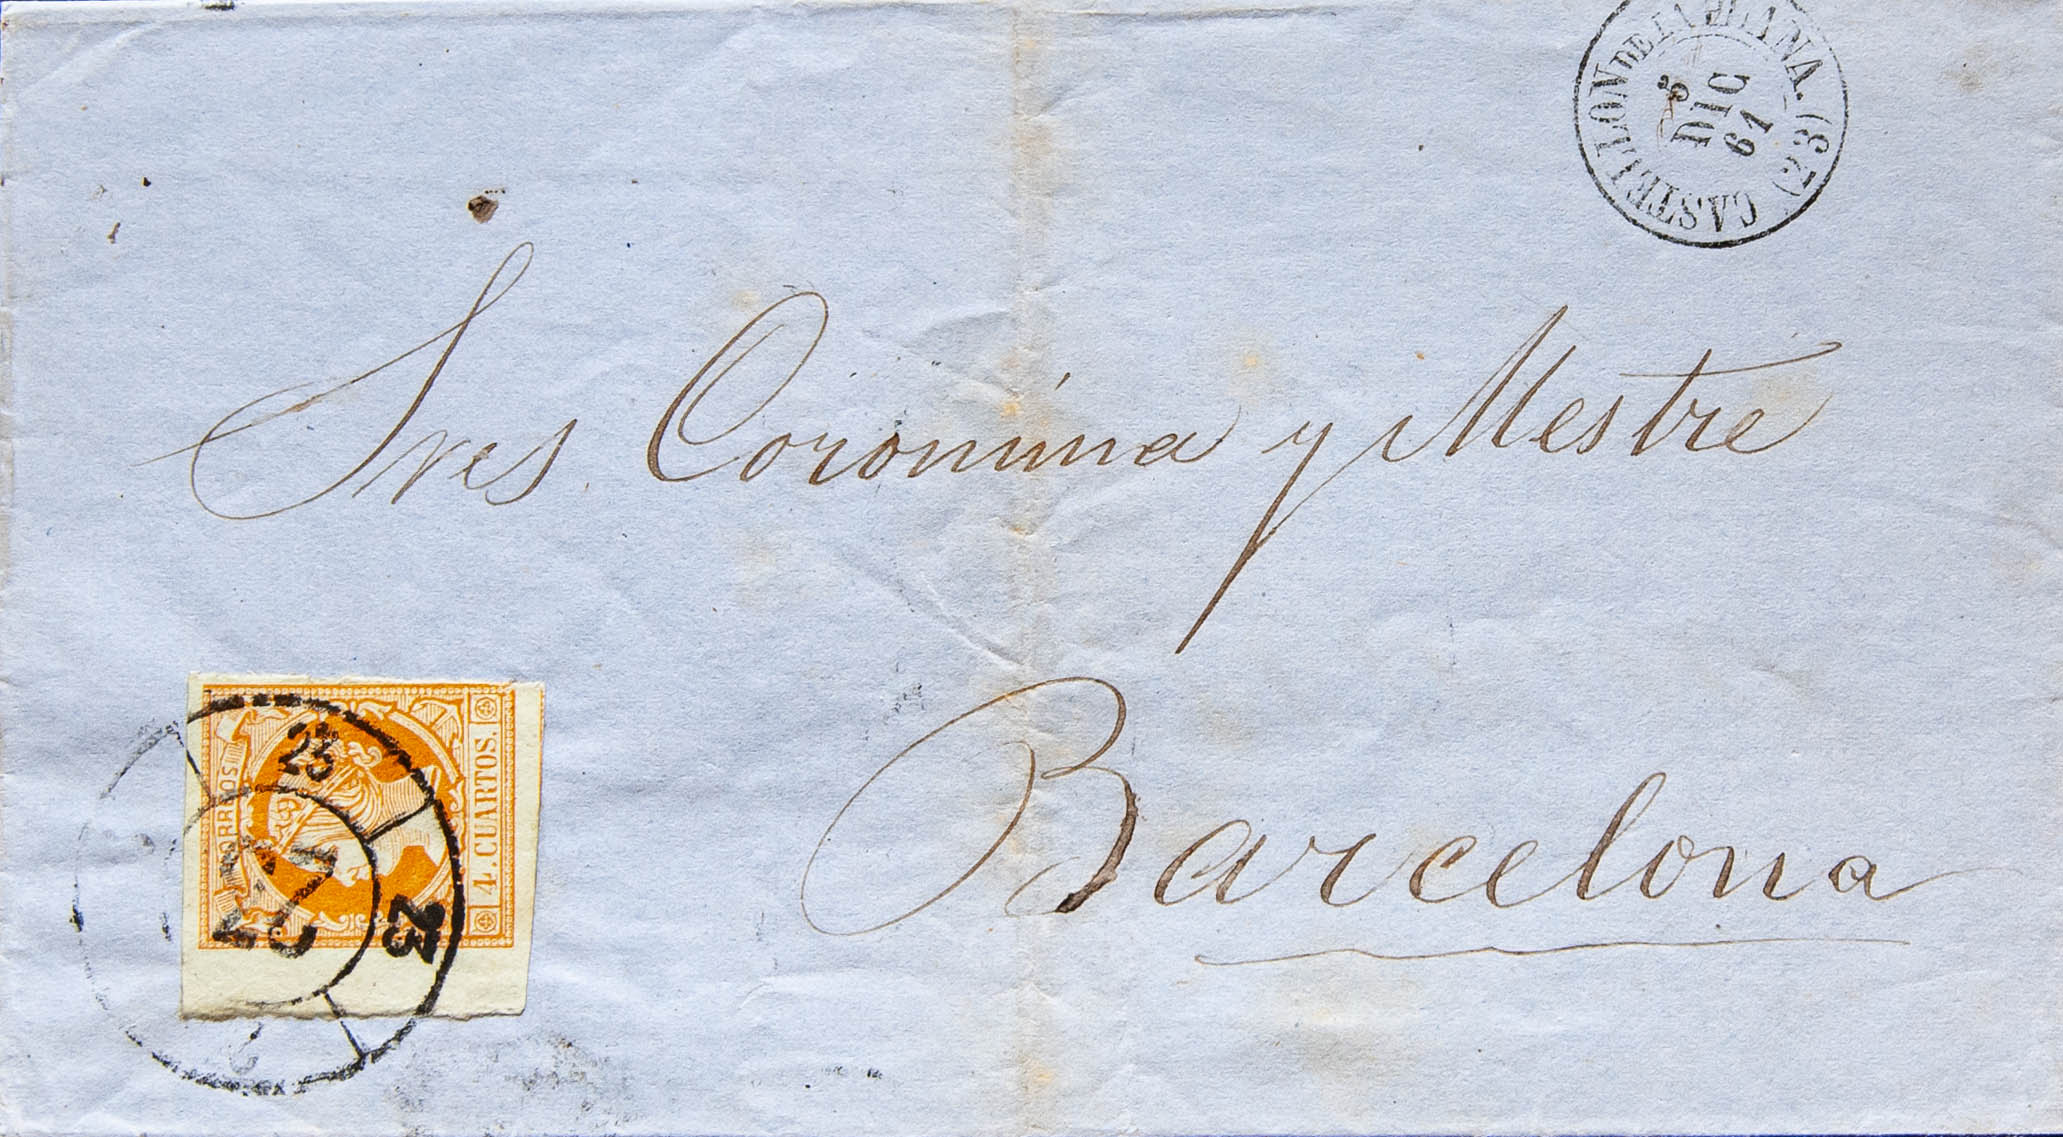 CASTELLON DE LA PLANA. (23)
3
DIC
61
Sres. Coromina y Mestre
Barcelona
CORREOS
4. CUARTOS.
23
23